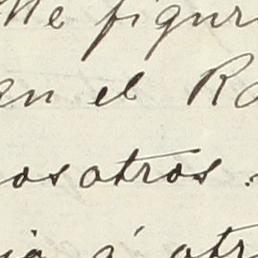 Me figur
en el Ro
nosotros.
ia á otr